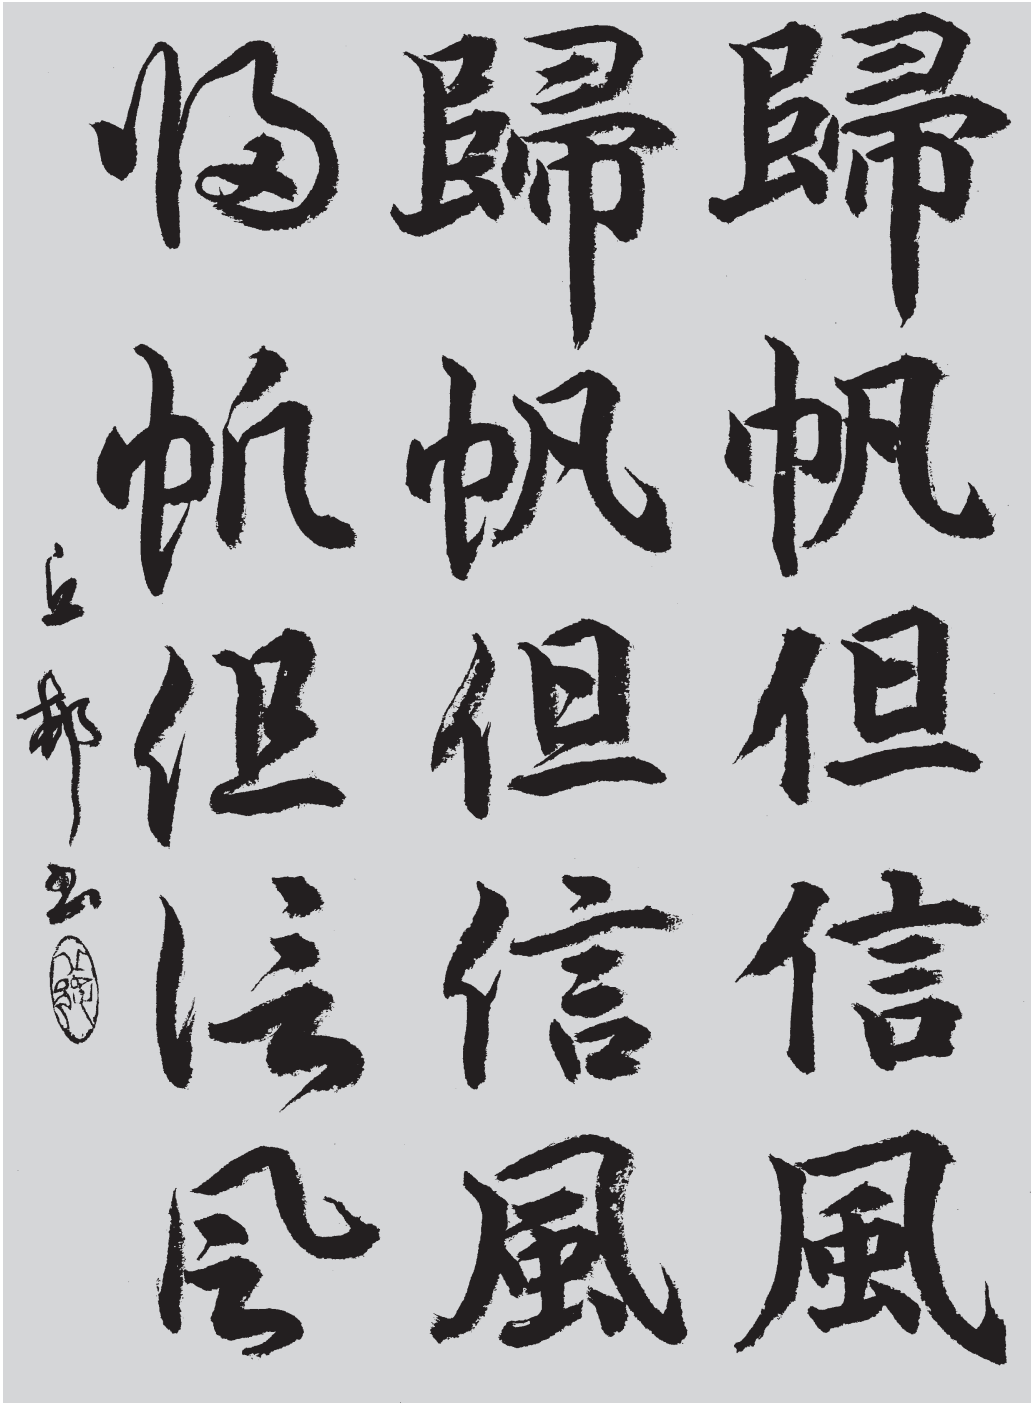 歸帆但信風
歸帆但信風
歸帆但信風